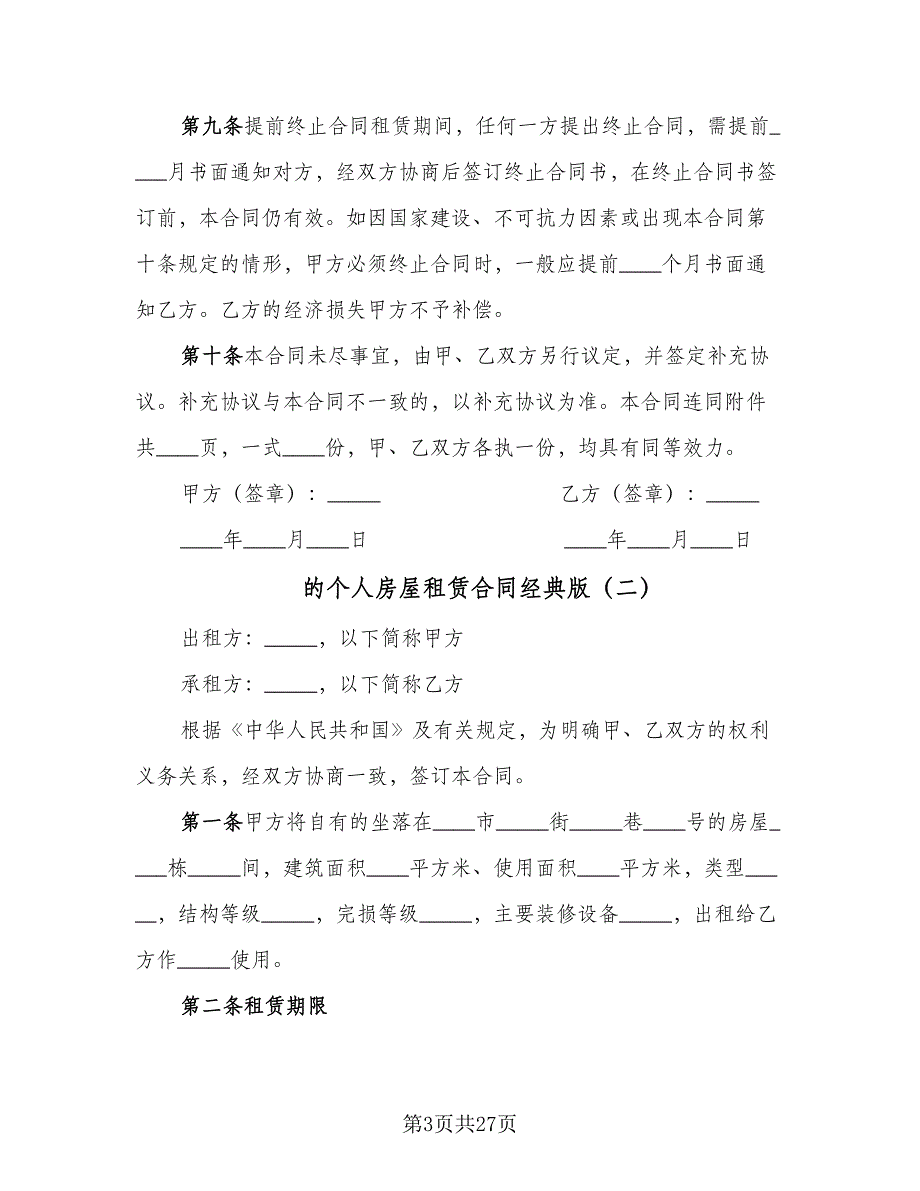 第九条提前终止合同租赁期间，任何一方提出终止合同，需提前_
___月书面通知对方，经双方协商后签订终止合同书，在终止合同书签
订前，本合同仍有效。如因国家建设、不可抗力因素或出现本合同第
十条规定的情形，甲方必须终止合同时，一般应提前____个月书面通
知乙方。乙方的经济损失甲方不予补偿。
第十条本合同未尽事宜，由甲、乙双方另行议定，并签定补充协
议。补充协议与本合同不一致的，以补充协议为准。本合同连同附件
共____页，一式____份，甲、乙双方各执一份，均具有同等效力。
甲方（签章）：_____ 乙方（签章）：_____
____年____月____日 ____年____月____日
的个人房屋租赁合同经典版（二）
出租方：_____，以下简称甲方
承租方：_____，以下简称乙方
根据《中华人民共和国》及有关规定，为明确甲、乙双方的权利
义务关系，经双方协商一致，签订本合同。
第一条甲方将自有的坐落在____市_____街_____巷____号的房屋_
___栋_____间，建筑面积____平方米、使用面积____平方米，类型___
__，结构等级_____，完损等级_____，主要装修设备_____，出租给乙
方作_____使用。
第二条租赁期限
第3页共27页